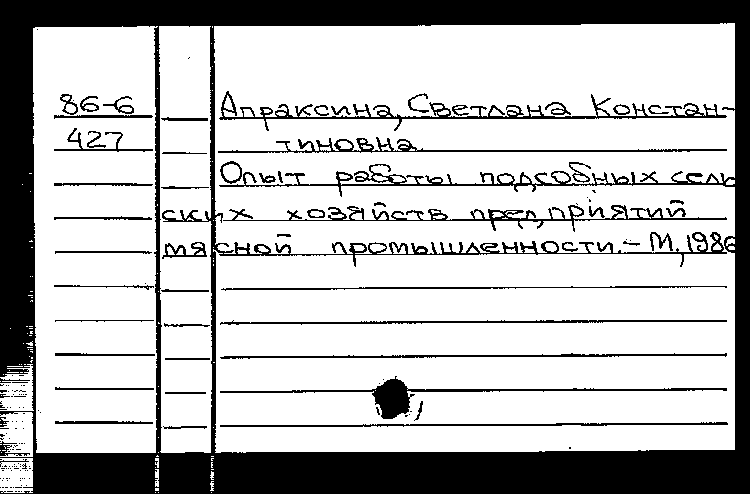 86-6 Апраксина, Светлана Констан-
427 тиновна.
Опыт работы подсобных сель
ских хозяйств предприятий
мясной промышленности. - М., 1986